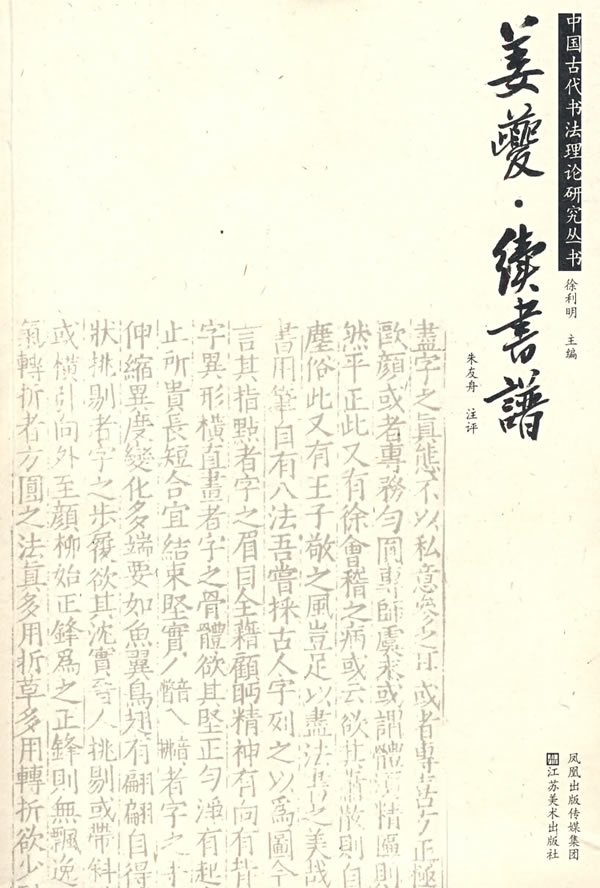 中国古代书法理论研究丛书
徐利明 主编
姜夔·續書譜
朱友舟 注评
盡字之真態不以私意參之耳或者專喜方正極
歐顏或者專務勻圓專師虞永或謂體須稍匾則
然平正此又有徐會稽之病或云欲其蕭散則自
塵俗此又有王子敬之風豈足以盡法書之美哉
書用筆自有八法吾嘗採古人字列之以爲圖今
言其指點者字之眉目全藉顧眄精神有向有背
字異形橫直畫者字之骨體欲其堅正勻淨有起
止所貴長短合宜結束堅實丿乀者字之手
伸縮異度變化多端要如魚翼鳥翅有翩翩自得
狀挑剔者字之步履欲其沈實晉人挑剔或帶斜
或橫引向外至顏柳始正鋒爲之正鋒則無飄逸
氣轉折者方圓之法真多用折草多用轉折欲少
凤凰出版传媒集团
江苏美术出版社